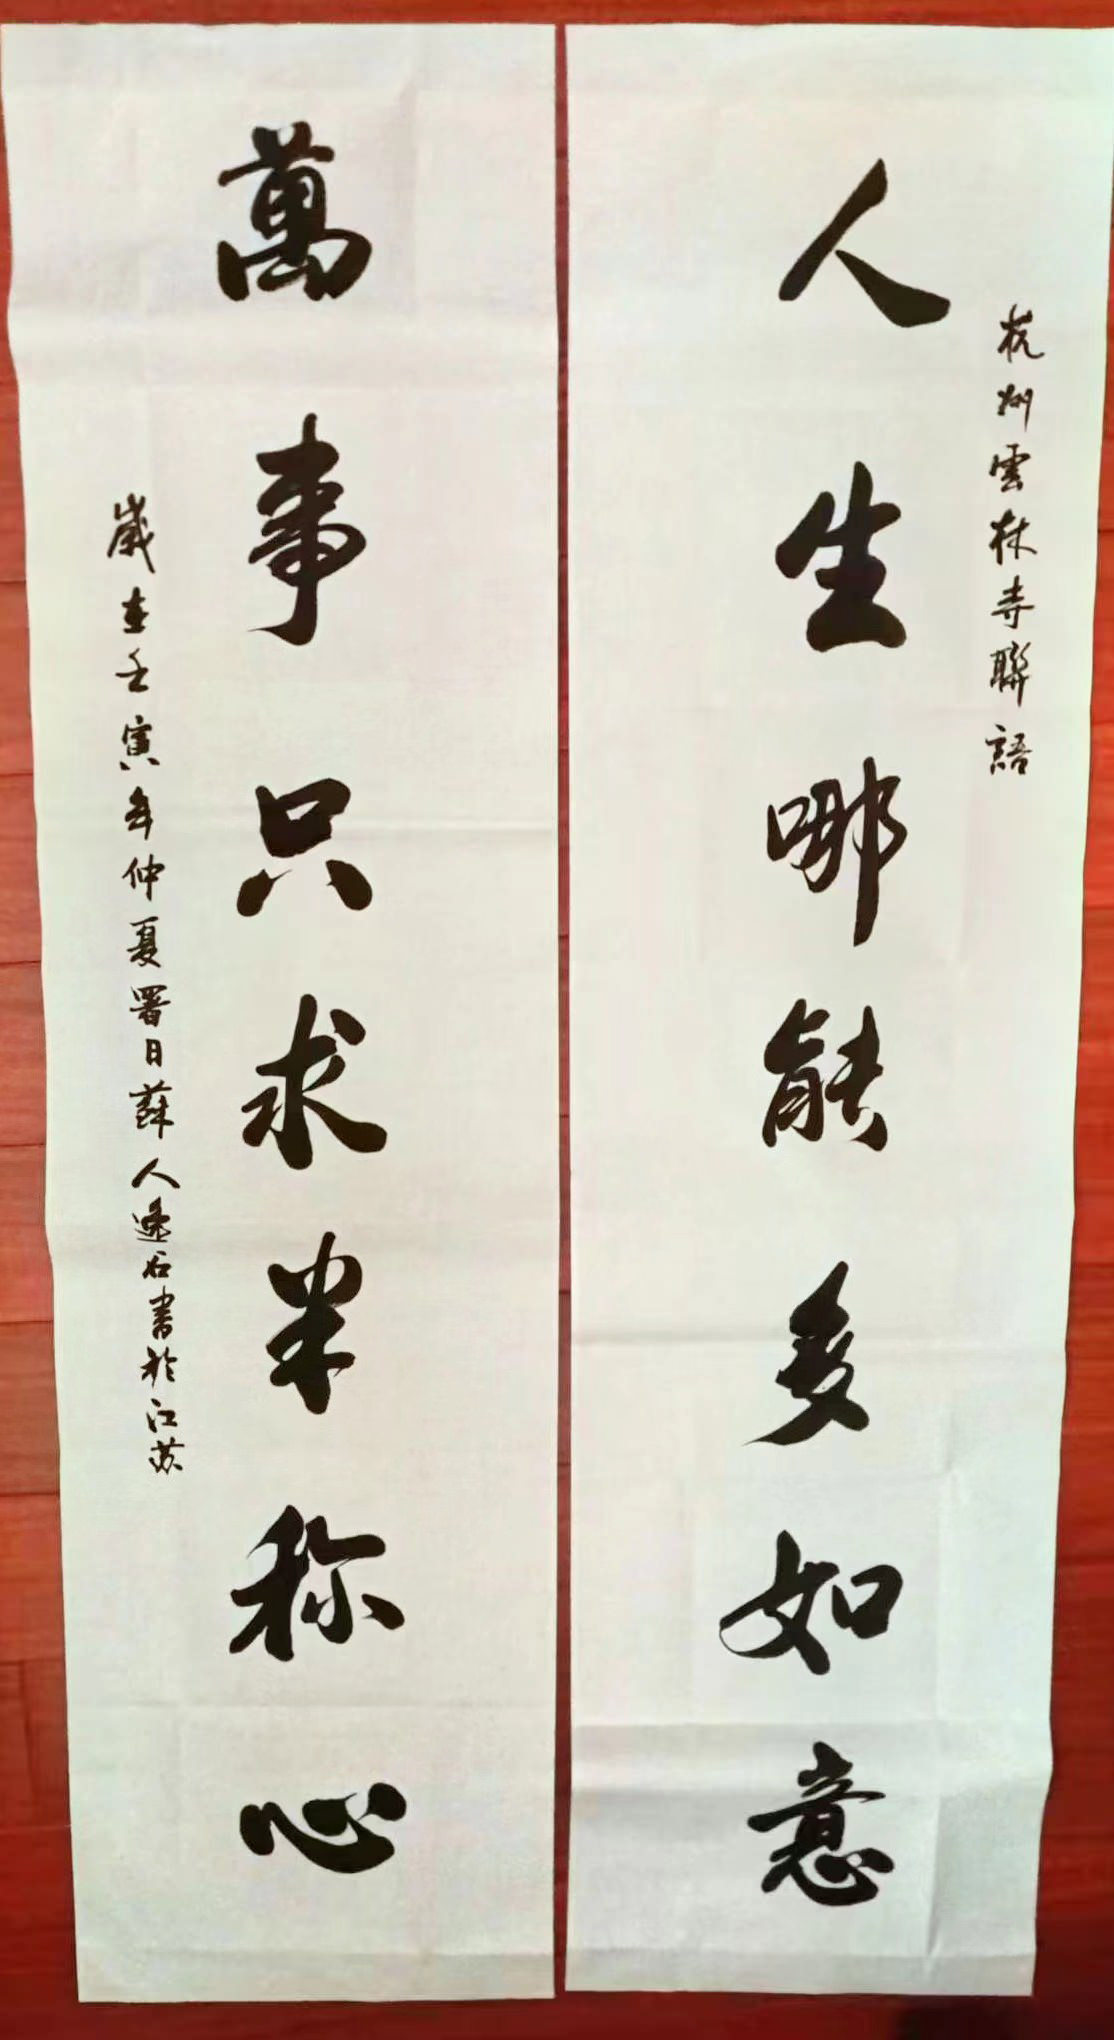 杭州雲林寺聯語
人生哪能多如意
萬事只求半称心
歲在壬寅年仲夏署日薛人逸石書於江苏